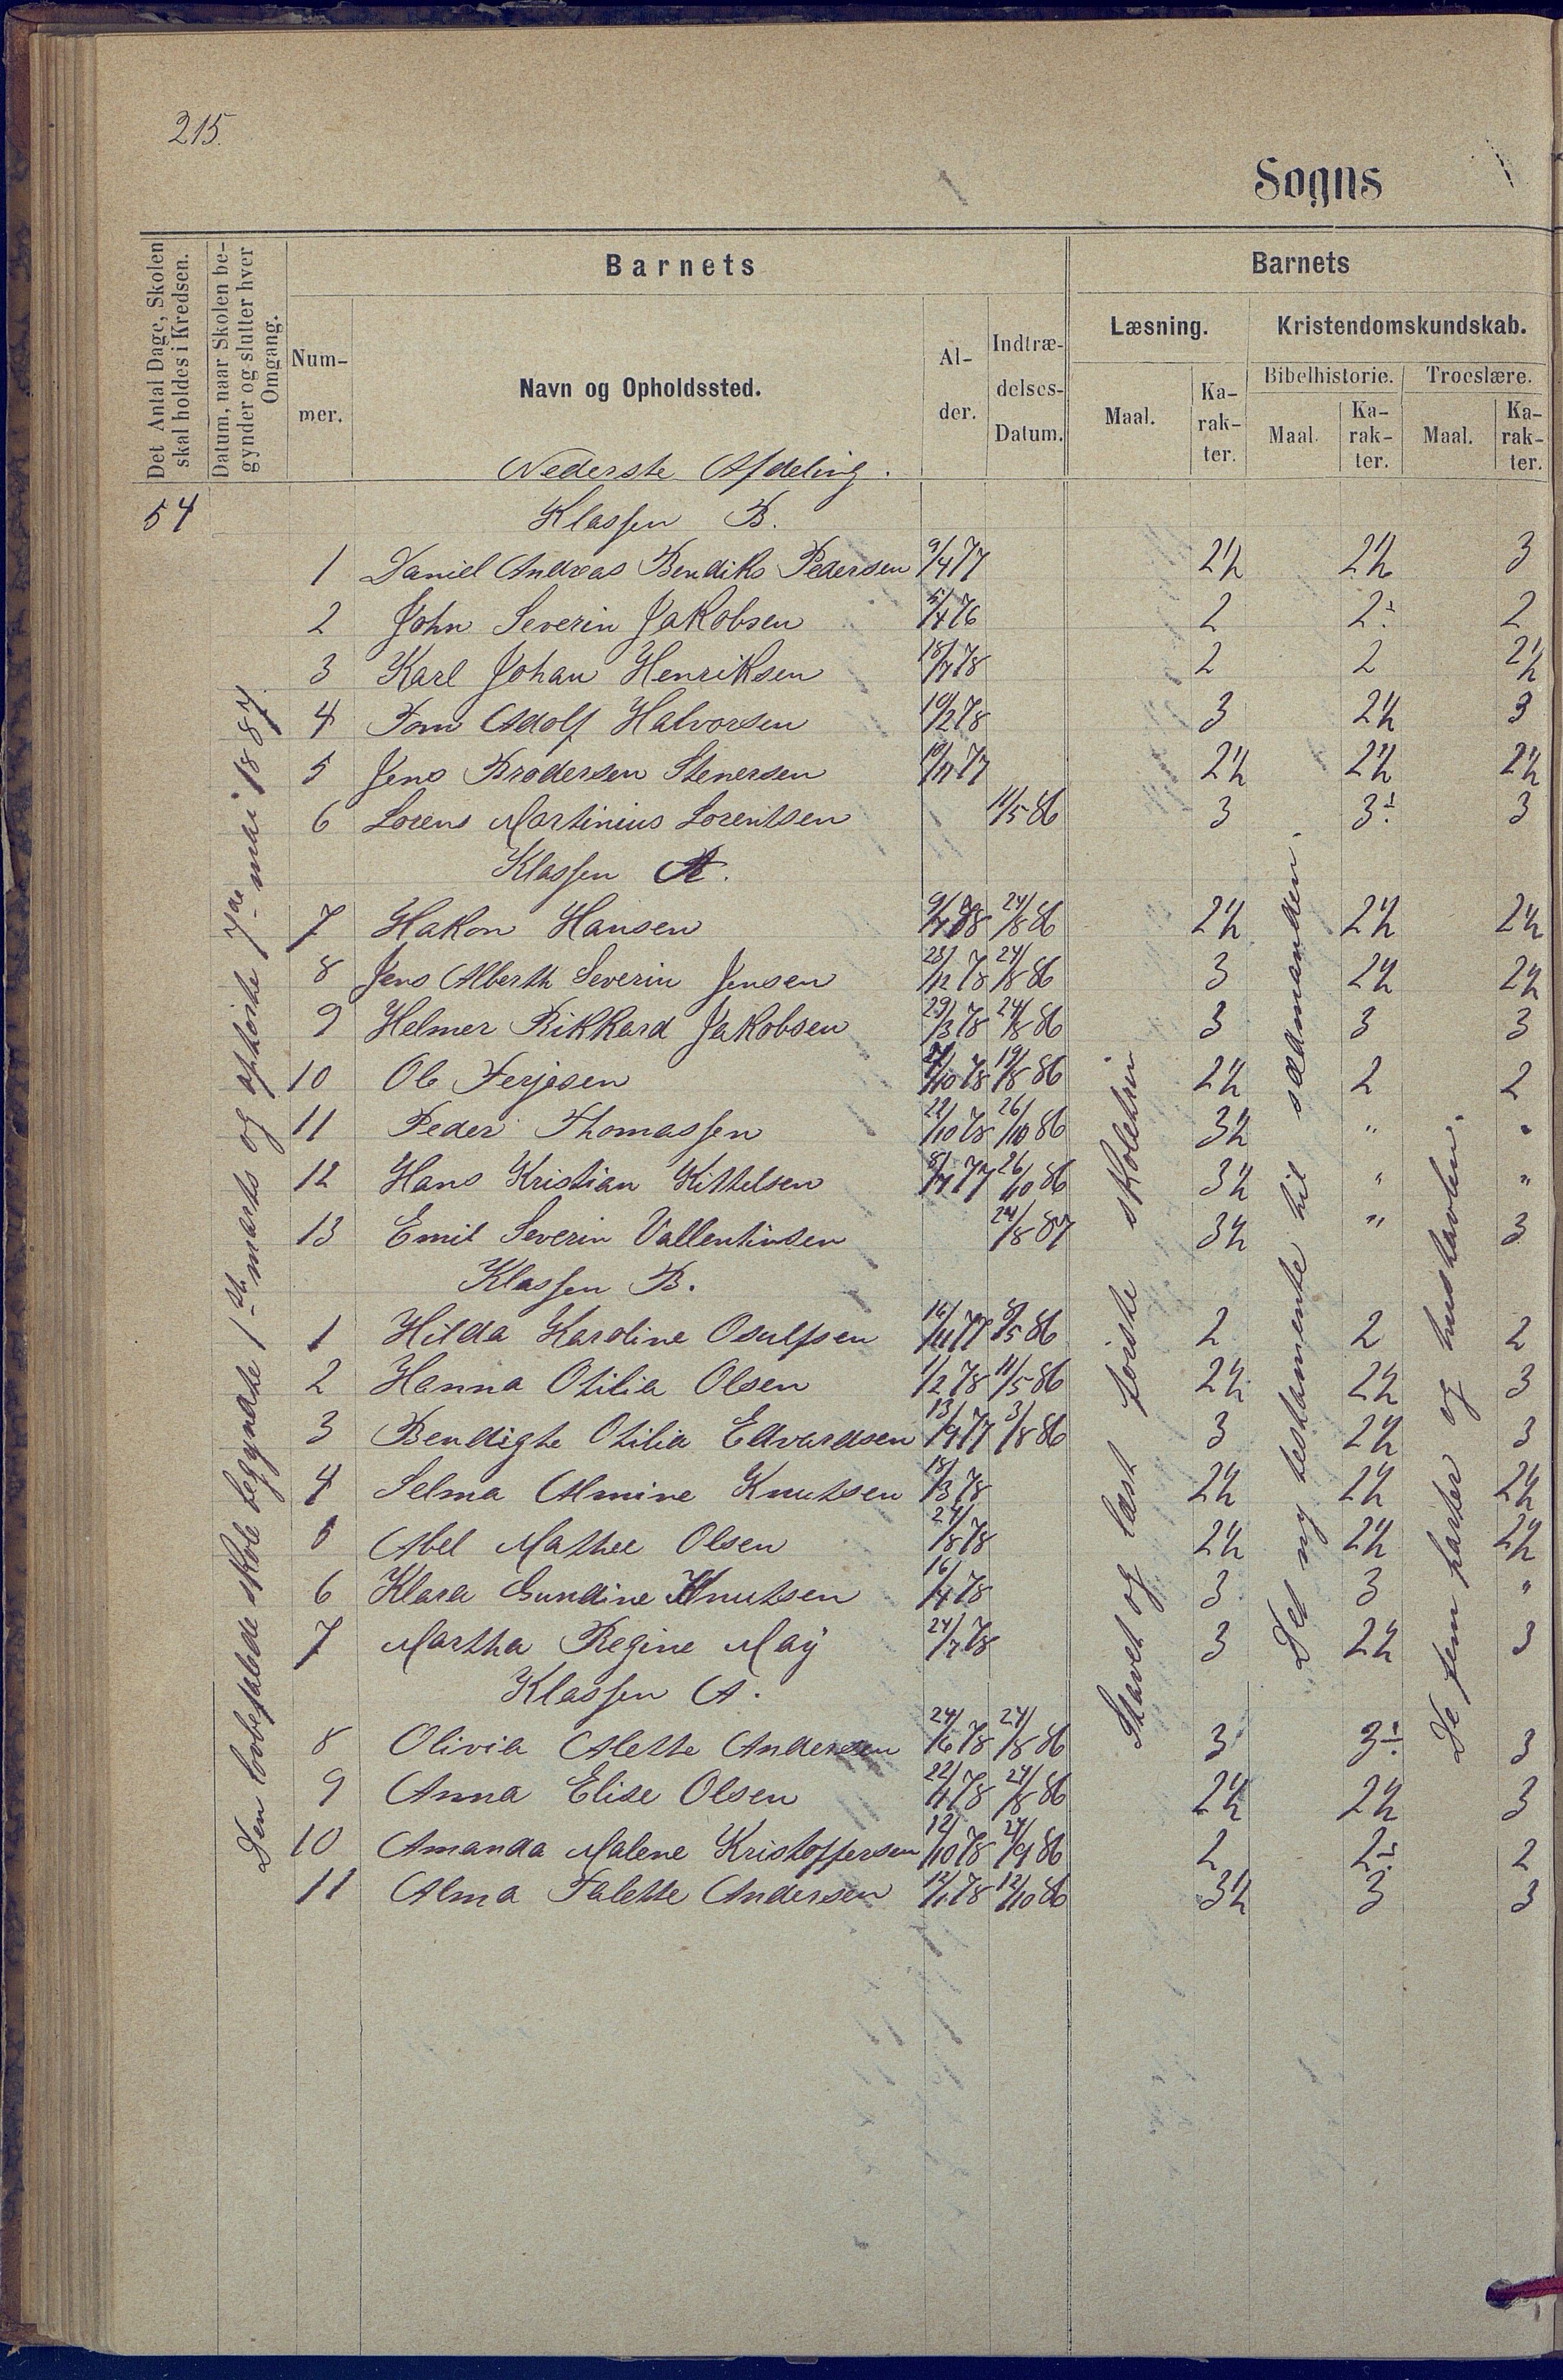 215.
Sogns
Det Antal Dage, Skolen skal holdes i Kredsen.
Datum, naar Skolen begynder og slutter hver Omgang.
Barnets
Barnets
Nummer.
Navn og Opholdssted.
Alder.
Indtrædelses-Datum.
Læsning.
Kristendomskundskab.
Maal.
Karakter.
Bibelhistorie.
Troeslære.
Maal.
Karakter.
Maal.
Karakter.
Nederste Afdeling.
54
Klassen B.
1 Daniel Andreas Bendiks Pedersen 9/4 77 2½ 2½ 3
2 John Severin Jakobsen 5/4 76 2 2÷ 2
3 Karl Johan Henriksen 18/7 78 2 2 2½
4 Tom Adolf Halvorsen 10/2 78 3 2½ 3
5 Jens Brodersen Stenersen 10/11 77 2½ 2½ 2½
6 Lorens Martinius Lorentsen 11/5 86 3 3÷ 3
Klassen A.
7 Hakon Hansen 24/8 86 2½ 2½ 2½
8 Jens Alberth Severin Jensen 28/12 78 24/8 86 3 2½ 2½
9 Helmer Rikkard Jakobsen 29/3 78 24/8 86 3 3 3
10 Ole Terjesen 10 78 19/8 86 2½ 2 2
11 Peder Thomassen 22/10 78 26/10 86 3½ " "
12 Hans Kristian Kittelsen 77 26/10 86 3½ " "
13 Emil Severin Vallentinsen 24/8 87 3½ " 3
Klassen B.
1 Hilda Karoline Osulfsen 16/11 77 8/5 86 2 2 2
2 Hanna Otilia Olsen 1/2 78 11/5 86 2½ 2½ 3
3 Bendigte Otilia Edvardsen 13/9 77 3/8 86 3 2½ 3
4 Selma Almine Knutsen 18/3 78 2½ 2½ 2½
5 Abel Mathee Olsen 24/8 78 2½ 2½ 2½
6 Klara Gundine Knutsen 16/4 78 3 3 "
7 Martha Regine Maÿ 24/7 78 3 2½ 3
Klassen A.
8 Olivia Alette Andersen 24/6 78 24/8 86 3 3÷ 3
9 Anna Elise Olsen 22/4 78 24/8 86 2½ 2½ 3
10 Amanda Malene Kristoffersen 12/10 78 21/9 86 2 2÷ 2
11 Alma Talette Andersen 12/1 78 12/10 86 3½ 3 3
Den lovbefalede skole begyndte 1ste marts og ophørte 7de mai 1887
Stavet og læst første skoletrin
Det ny testamente til sædmanden.
De fem parter og hustavlen.